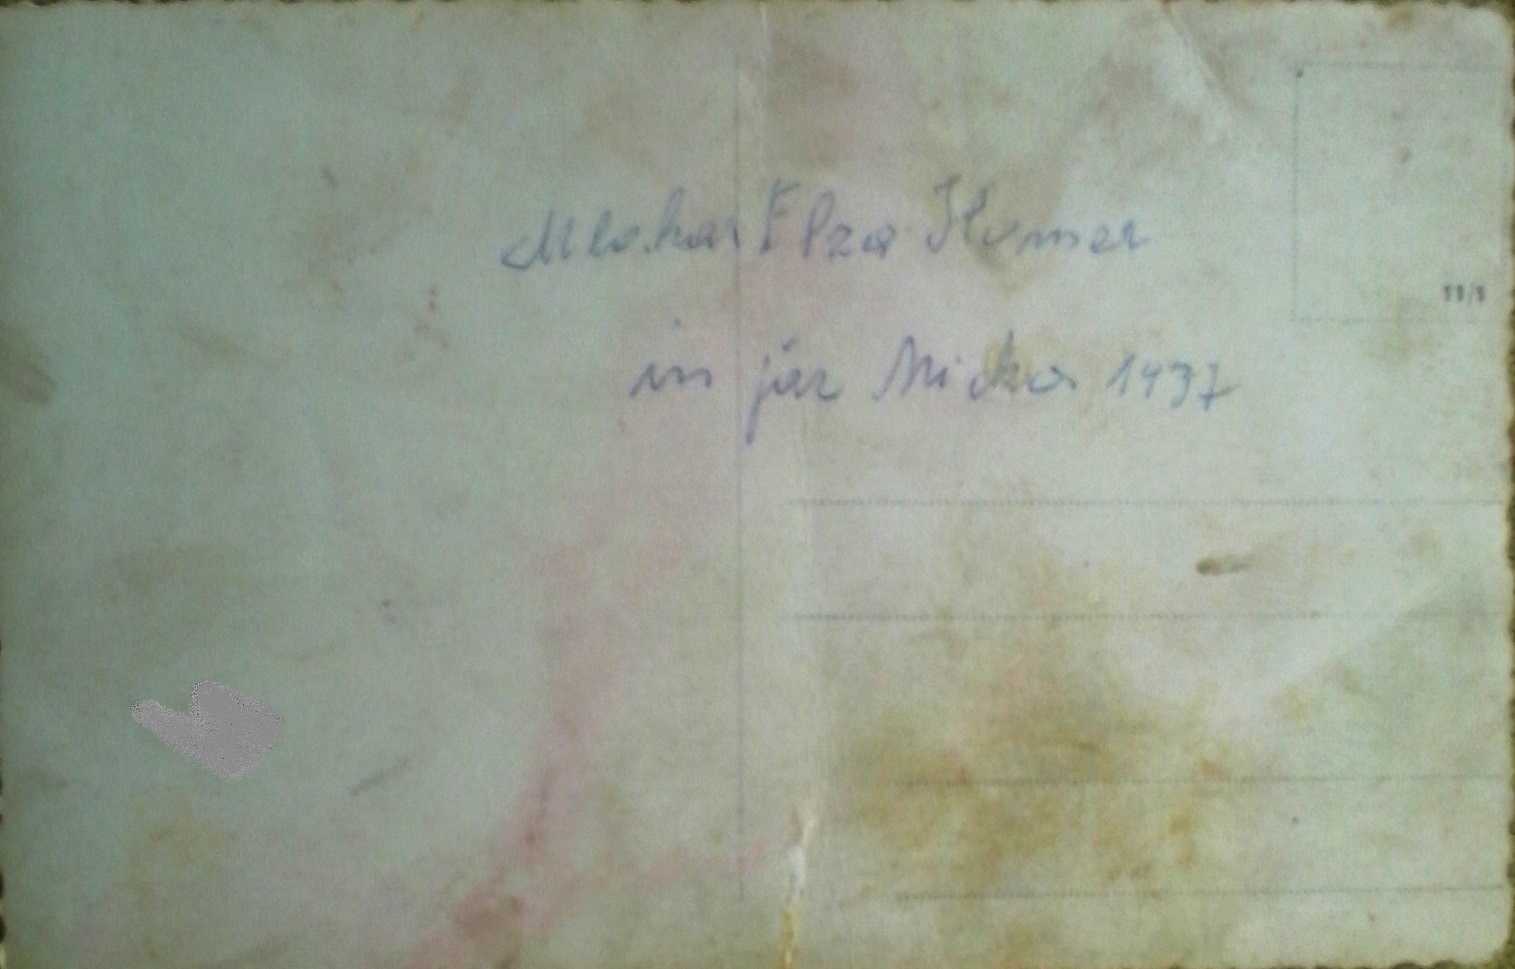 Mlakar Elza Humer
in jaz Micka 1937